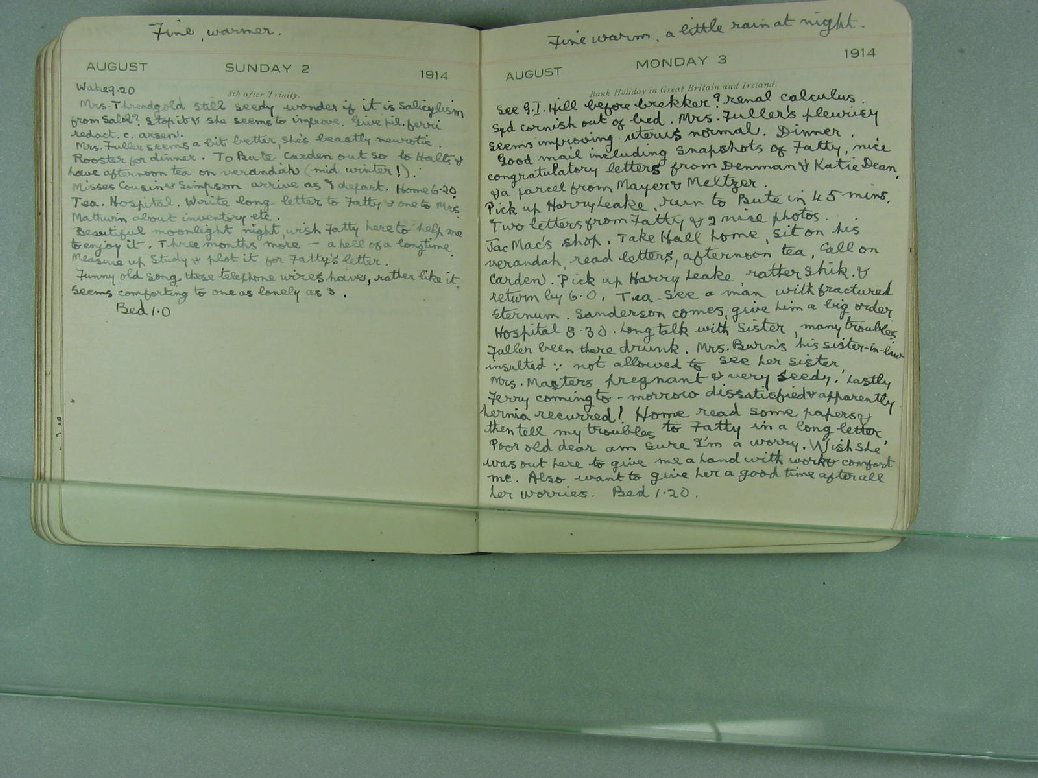 Fine, warmer.
AUGUST SUNDAY 2 1914
8th after Trinity.
Wake 9.20
Mrs. Threadgold still seedy wonder if it is salicylism
from Salol? Stop it & she seems to improve. Give pil. ferri
redact. c. arsen.
Mrs. Fuller seems a bit better, she's beastly neurotic.
Rooster for dinner. To Paute Carden out so to Halls &
have afternoon tea on verandah (mid winter!).
Misses Cousin & Simpson arrive as I depart. Home 6.20.
Tea. Hospital. Write long letter to Fatty & one to Mrs.
Mathwin about inventory etc.
Beautiful moonlight night, wish Fatty here to help me
to enjoy it. Three months more — a hell of a long time.
Measure up Study & plot it for Fatty's letter.
Funny old song, these telephone wires have, rather like it,
seems comforting to one as lonely as I.
Bed 1.0
Fine warm, a little rain at night.
AUGUST MONDAY 3 1914
Bank Holiday in Great Britain and Ireland.
See G.I. Hill before brekker ? renal calculus.
Syd Cornish out of bed. Mrs. Fuller's pleurisy
seems improving, uterus normal. Dinner.
Good mail including snapshots of Fatty, nice
congratulatory letters from Denman & Katie Dean,
& a parcel from Mayer & Meltzer.
Pick up Harry Leake, run to Paute in 45 mins.
Two letters from Fatty & 2 nice photos.
Jac Mac's shop. Take Hall home, sit on his
verandah, read letters, afternoon tea, Call on
Carden. Pick up Harry Leake rather shik. &
return by 6.0. Tea. See a man with fractured
sternum. Sanderson comes, give him a big order
Hospital 8.30. Long talk with Sister, many troubles.
Faller been there drunk. Mrs. Burns his sister-in-law
insulted ∵ not allowed to see her sister,
Mrs. Masters pregnant & very seedy. Lastly
Ferry coming to-morrow dissatisfied & apparently
hernia recurred! Home read some papers &
then tell my troubles to Fatty in a long letter,
Poor old dear am sure I'm a worry. Wish she
was out here to give me a hand with work & comfort
me. Also want to give her a good time after all
her worries. Bed 1.20.